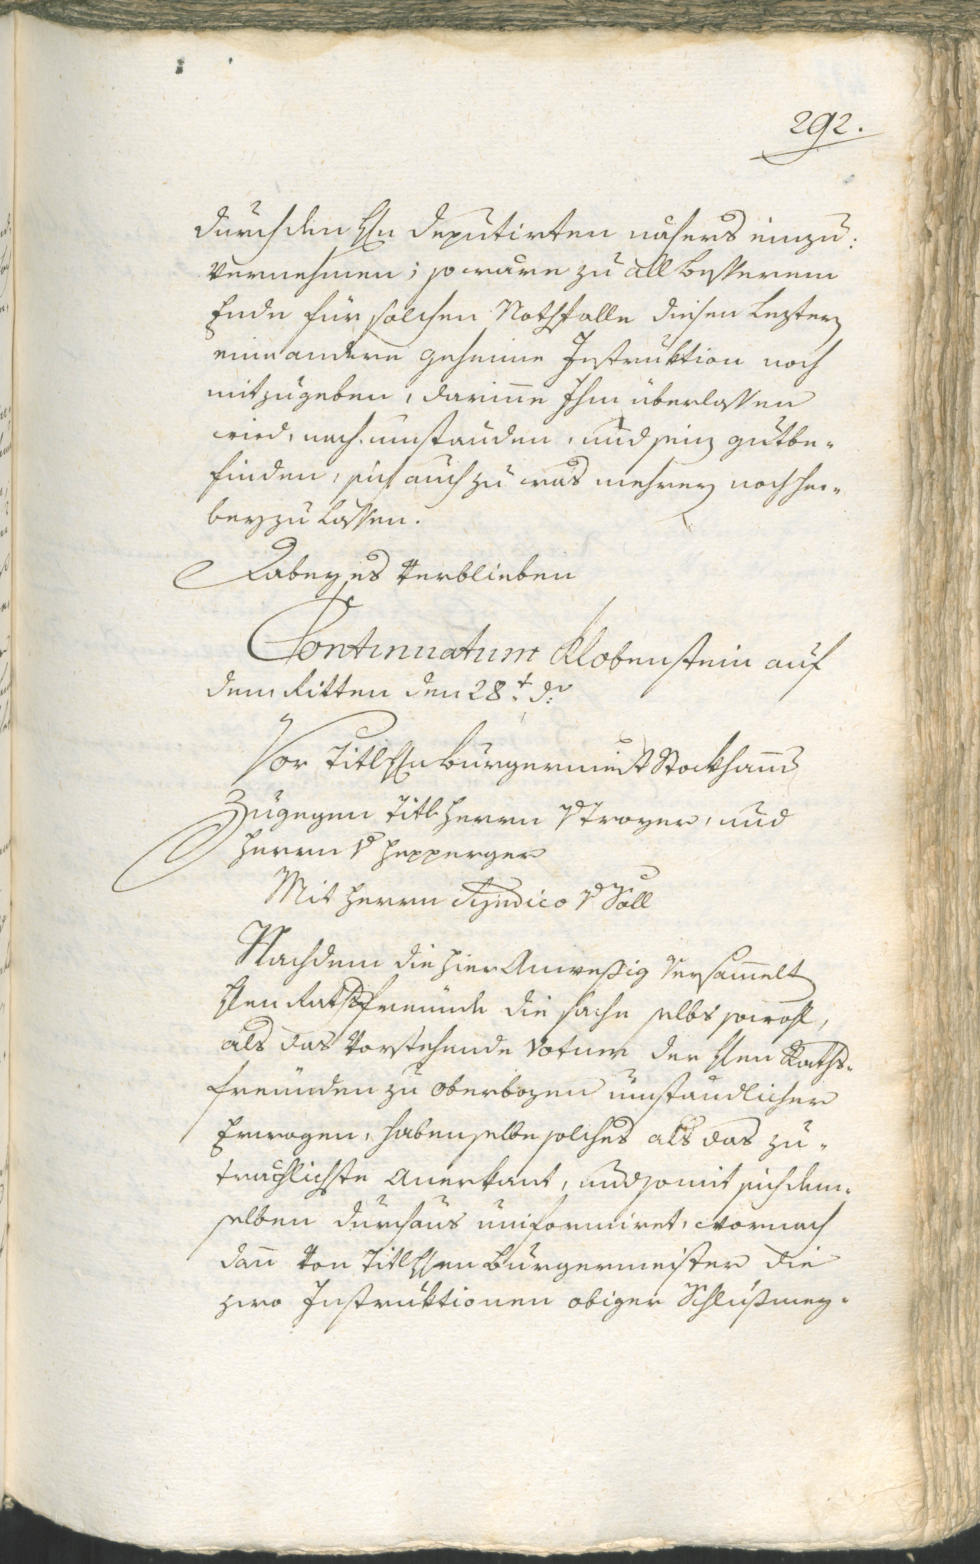 292.
durch den H̃n deputirten nähers einzu:
vernehmen; so wäre zu all besserem
Ende für solchen Nothfalle diesen Leztern
eine andere geheime Instruktion noch
mitzugeben, darinne Ihm überlassen
wird, nach umständen, und sein gutbe-
finden, sich auch zu was mehrern noch her-
beyzulassen.
Dabey es verblieben
Continuatum Klobenstein auf
dem Ritten den 28t. do:
Vor Titl H̃n Burgermeister Stockhamẽr
Zugegen Titl Herrn v Troyer, und
Herrn v Hepperger
Mit Herrn Syndico v Söll
Nachdem die hier Anweßig versam̃elt
H̃en Rathsfreunde die sache selbs sowohl,
als das vorstehende Votum der H̃en Raths-
freunden zu oberbozen umständlicher
Erwogen, haben selbe solches als das zu-
träglichste Anerkant, und somit sich dem-
selben durchaus uniformiret, wornach
dan̄ von Titl H̃en Burgermeister die
zwo Instruktionen obiger Schlußmey-